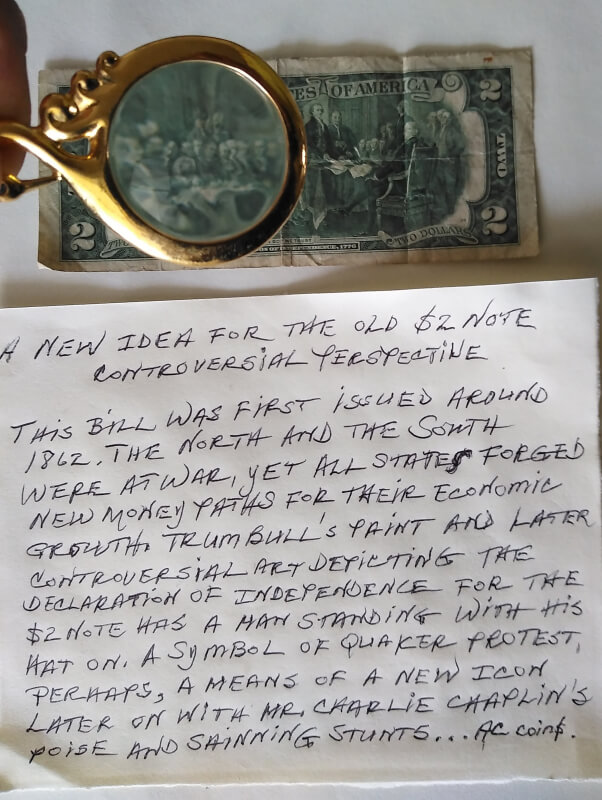 ES OF AMERICA
2
TWO
2
2
TWO DOLLARS
OF INDEPENDENCE, 1776
A NEW IDEA FOR THE OLD $2 NOTE
CONTROVERSIAL PERSPECTINE
THIS BILL WAS FIRST ISSUED AROUND
1862. THE NORTH AND THE SOUTH
WERE AT WAR, YET ALL STATES FORGED
NEW MONEY PATHS FOR THEIR ECONOMIC
GROWTH. TRUMBULL'S PAINT AND LATER
CONTROVERSIAL ART DEPICTING THE
DECLARATION OF INDEPENDENCE FOR THE
$2 NOTE HAS A MAN STANDING WITH HIS
HAT ON. A SYMBOL OF QUAKER PROTEST,
PERHAPS, A MEANS OF A NEW ICON
LATER ON WITH MR. CHARLIE CHAPLIN'S
POISE AND SAINNING STUNTS... AC COIN$.